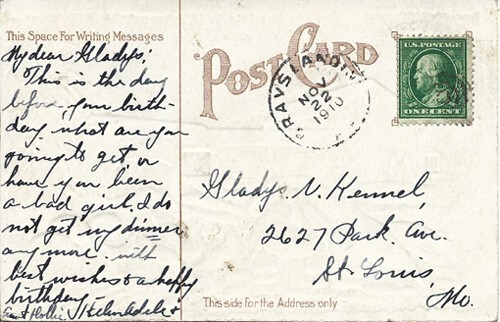 This Space For Writing Messages
My dear Gladys;
This is the day
before your birth-
day, what are you
going to get, or
have you been
a bad girl. I do
not get my dinner
any more. with
best wishes & a happy
birthday.
Hollie, Helen Adele &
POST CARD
GRAYS LANDING
NOV
22
1910
PA.
U.S. POSTAGE
ONE CENT
Gladys V. Kennel,
2627 Park Ave.
St. Louis
Mo.
This side for the Address only